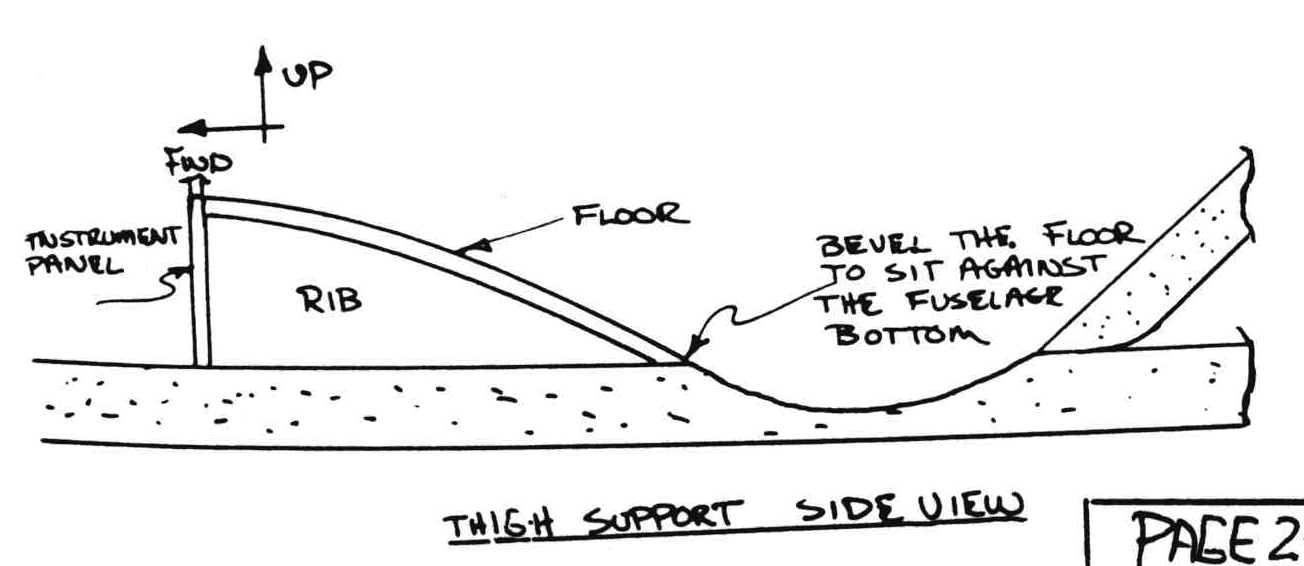 UP
FWD
INSTRUMENT
PANEL
FLOOR
RIB
BEVEL THE FLOOR
TO SIT AGAINST
THE FUSELAGE
BOTTOM
THIGH SUPPORT SIDE VIEW
PAGE 2